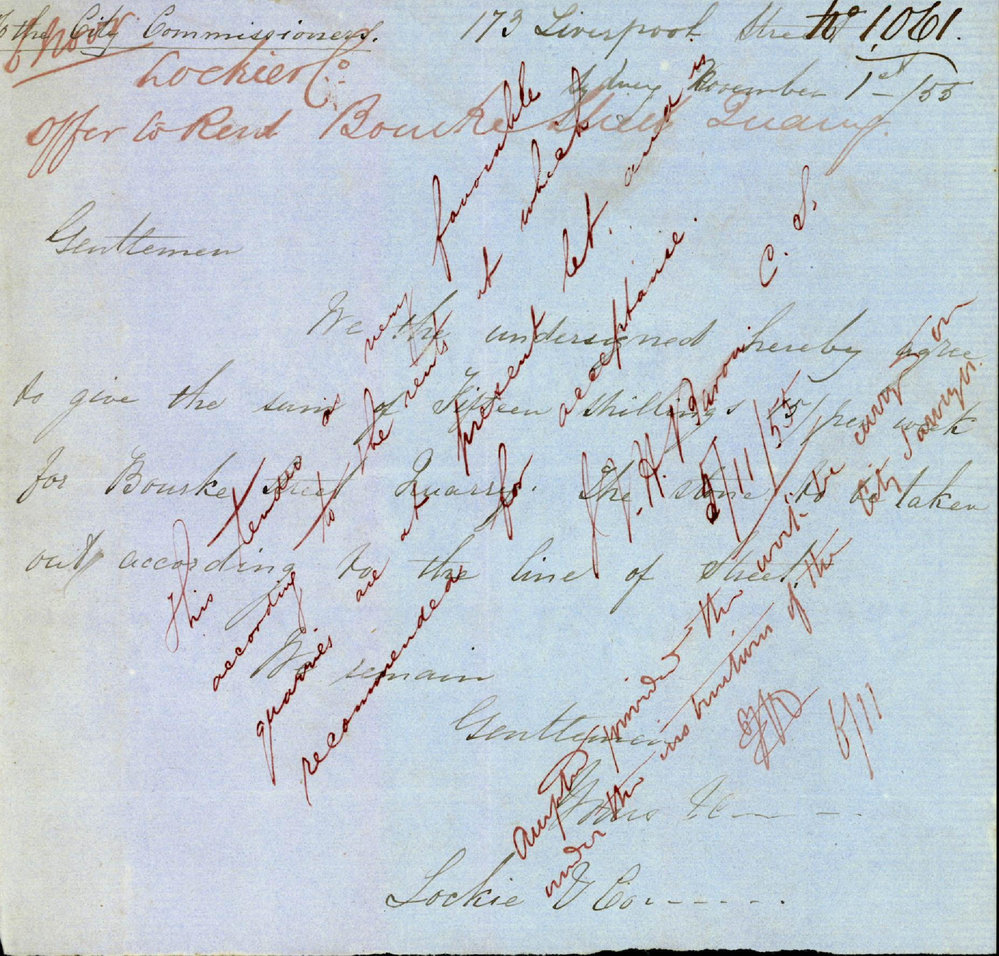 To the City Commissioners.
173 Liverpool Street
No 1,061.
6 Nov
Lockie & Co
Sydney November 1st /55
Offer to Rent Bourke Street Quarry.
Gentlemen
We the undersigned hereby agree
to give the sum of Fifteen Shillings 15/ per week
for Bourke Street Quarry. The stone to be taken
out according to the line of Street.
We remain
Gentlemen
Yours &c
Lockie & Co
This tender is very favorable
according to the rents at which
quarries are at present let. and is
recommended for acceptance.
J. H. Baron C. S
5/11/55
Accepted provided the work be carry'd on
under the instructions of the City Surveyor.
6/11